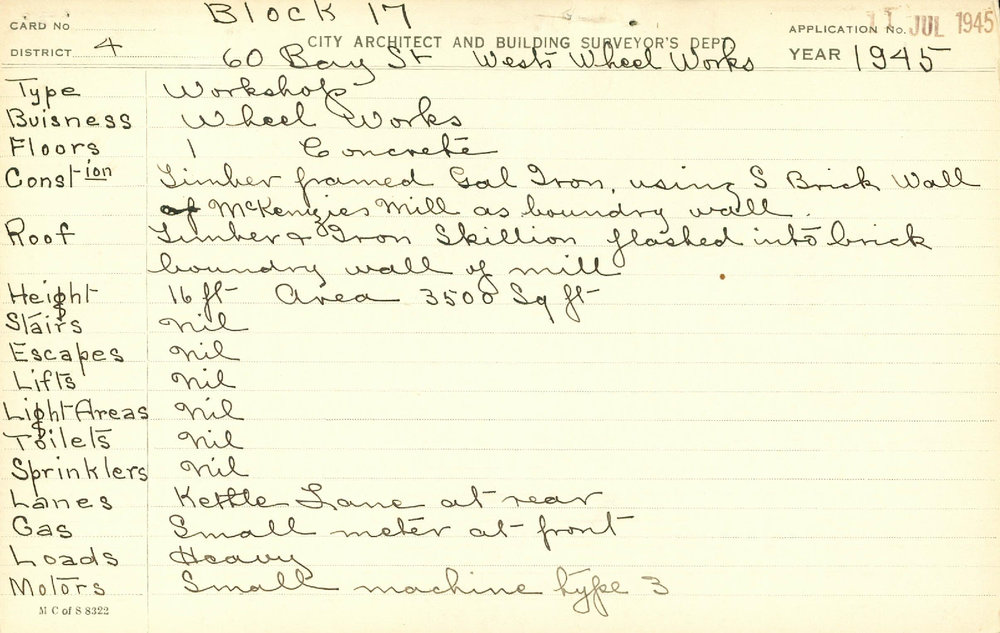 Block 17
CARD No
APPLICATION No. 11 JUL 1945
DISTRICT 4
CITY ARCHITECT AND BUILDING SURVEYOR'S DEPT
YEAR 1945
60 Bay St Wests Wheel Works
Type Workshop
Buisness Wheel Works
Floors 1 Concrete
Constion Timber framed Gal Iron, using S Brick Wall
of McKenzies Mill as boundry wall.
Roof Timber & Iron Skillion flashed into brick
boundry wall of mill
Height 16 ft Area 3500 Sq ft
Stairs Nil
Escapes Nil
Lifts Nil
Light Areas Nil
Toilets Nil
Sprinklers Nil
Lanes Kettle Lane at rear
Gas Small meter at front
Loads Heavy
Motors Small machine type 3
M C of S 8322